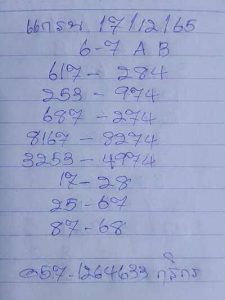 แกรม 17/12/65
6-7 A B
617 - 284
253 - 974
687 - 274
8167 - 8274
3253 - 4974
17 - 28
25 - 67
87 - 68
057-1264633